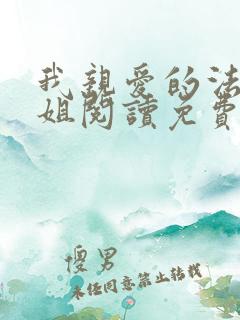 我親愛的法
姐閱讀免費
傻男
未經同意禁止轉載